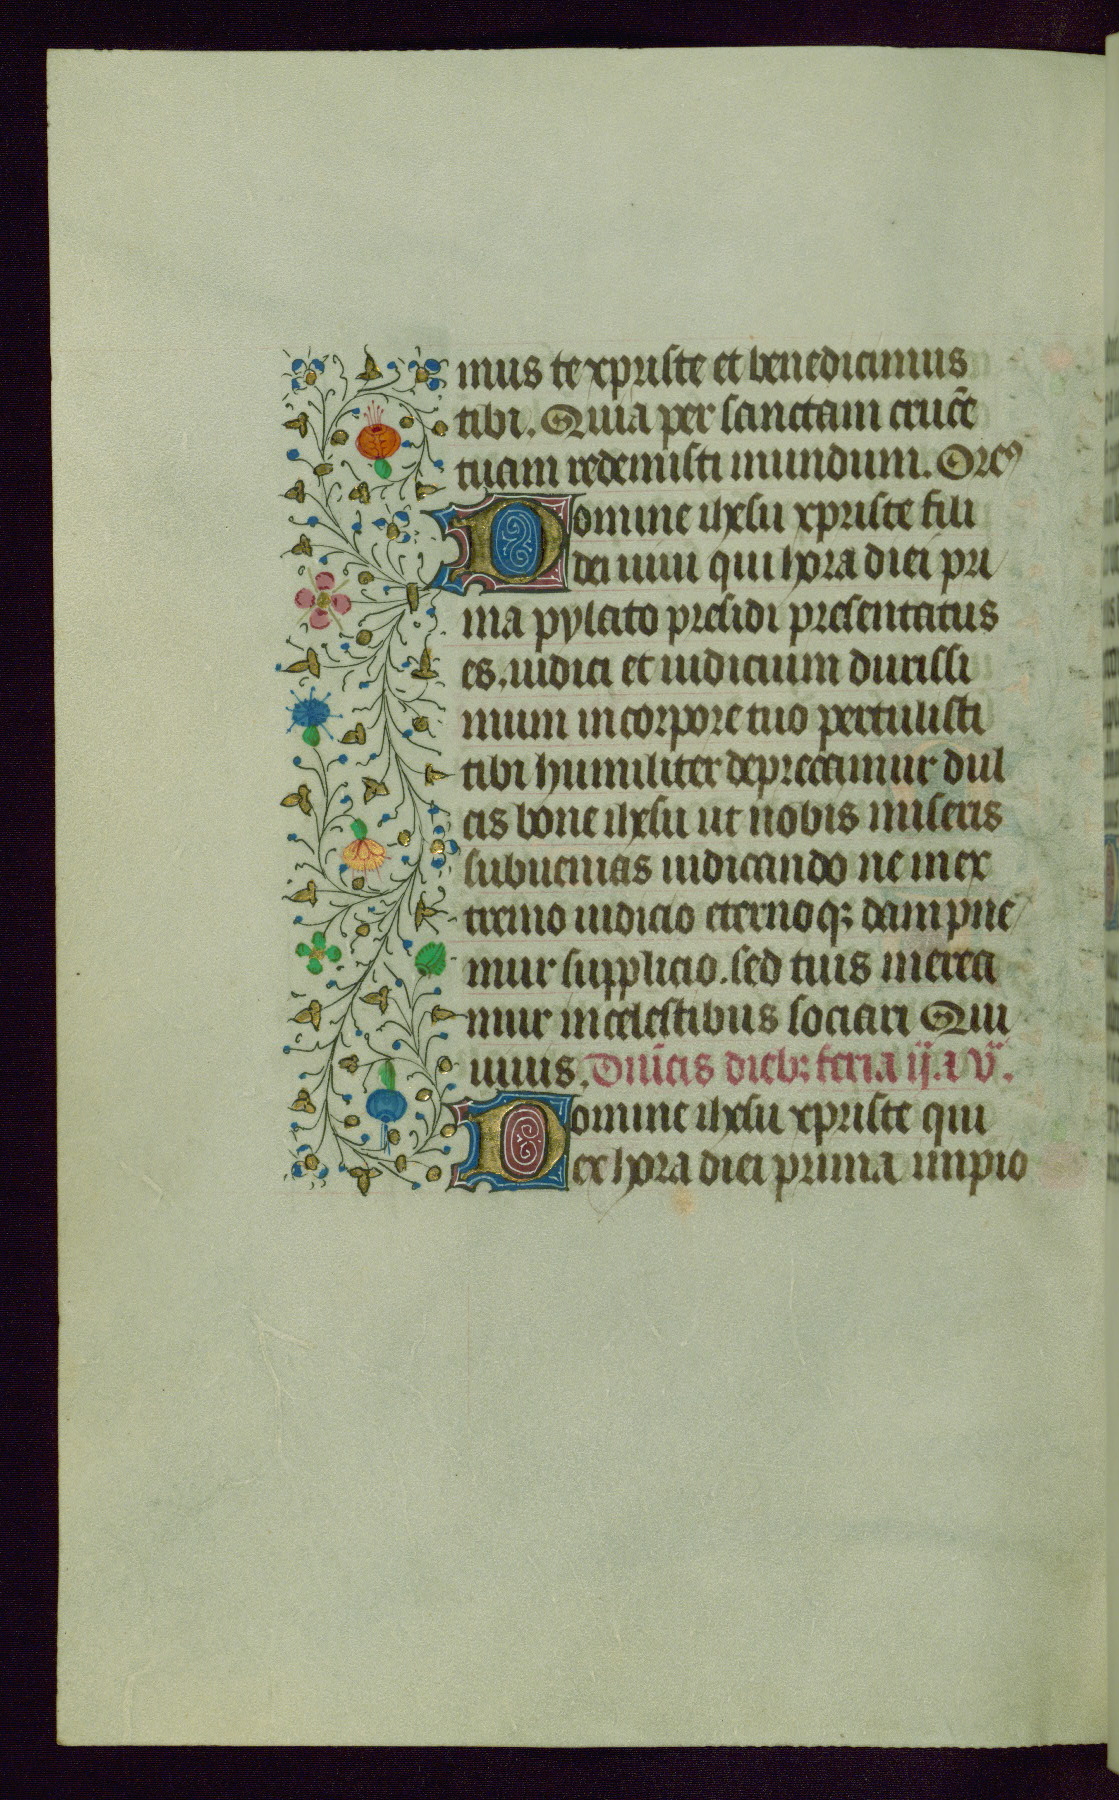 mus te xpriste et benedicimus
tibi. Quia per sanctam crucē
tuam redemisti mundum. Oreꝰ
Domine ihesu xpriste fili
dei uiui qui hora diei pri
ma pylato presidi presentatus
es. iudici et iudicium durissi
mum in corpore tuo pertulisti
tibi humiliter deprecamur dul
cis bone ihesu ut nobis miseris
subuenias iudicando ne in ex
tremo iudicio eternoqꝫ dampne
mur supplicio. sed tuis merea
mur in celestibus sociari Qui
uiuis. Diūcis diebꝫ feria ij. ⁊ v.
Domine ihesu xpriste qui
ex hora diei prima impio